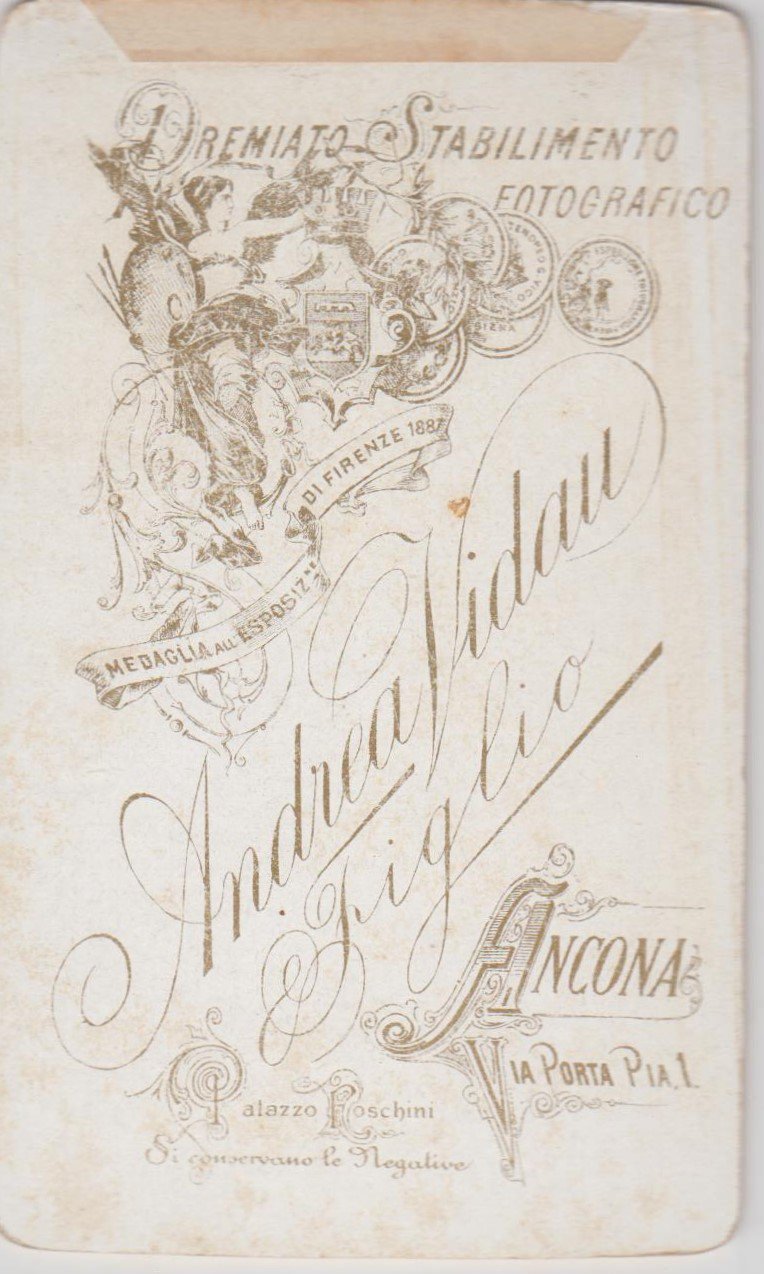 Premiato Stabilimento
Fotografico
SIENA
MEDAGLIA ALL' ESPOSIZNE
DI FIRENZE 1887
Andrea Vidau
Figlio
Ancona
Via Porta Pia, 1.
Palazzo Foschini
Si conservano le Negative